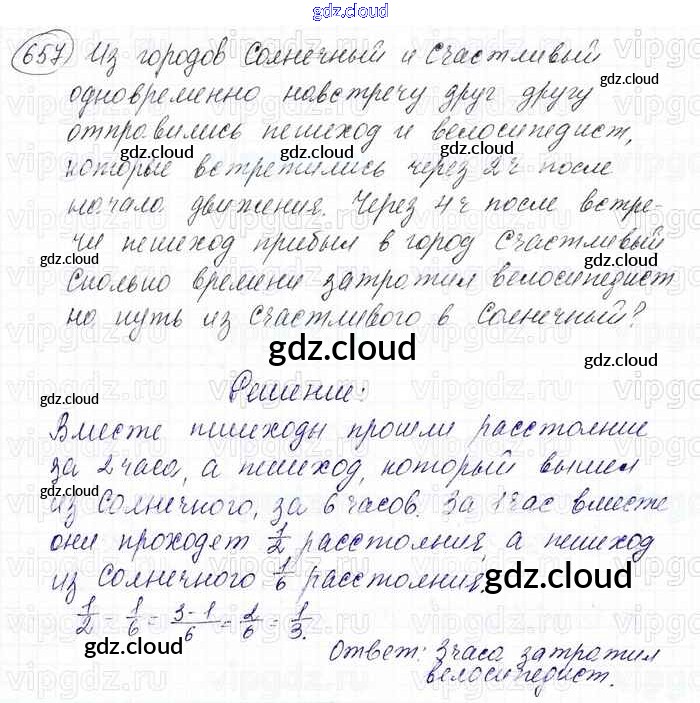 gdz.cloud
657) Из городов Солнечный и Счастливый
одновременно навстречу друг другу
отправились пешеход и велосипедист,
которые встретились через 2ч после
начала движения. Через 4ч после встре-
чи пешеход прибыл в город Счастливый
Сколько времени затратил велосипедист
на путь из Счастливого в Солнечный?
gdz.cloud
Решение:
Вместе пешеходы прошли расстояние
за 2 часа, а пешеход, который вышел
из Солнечного, за 6 часов. За 1 час вместе
они проходят 1/2 расстояния, а пешеход
из Солнечного 1/6 расстояния.
gdz.cloud
1/2 - 1/6 = 3-1/6 = 2/6 = 1/3.
Ответ: 3 часа затратил
велосипедист.